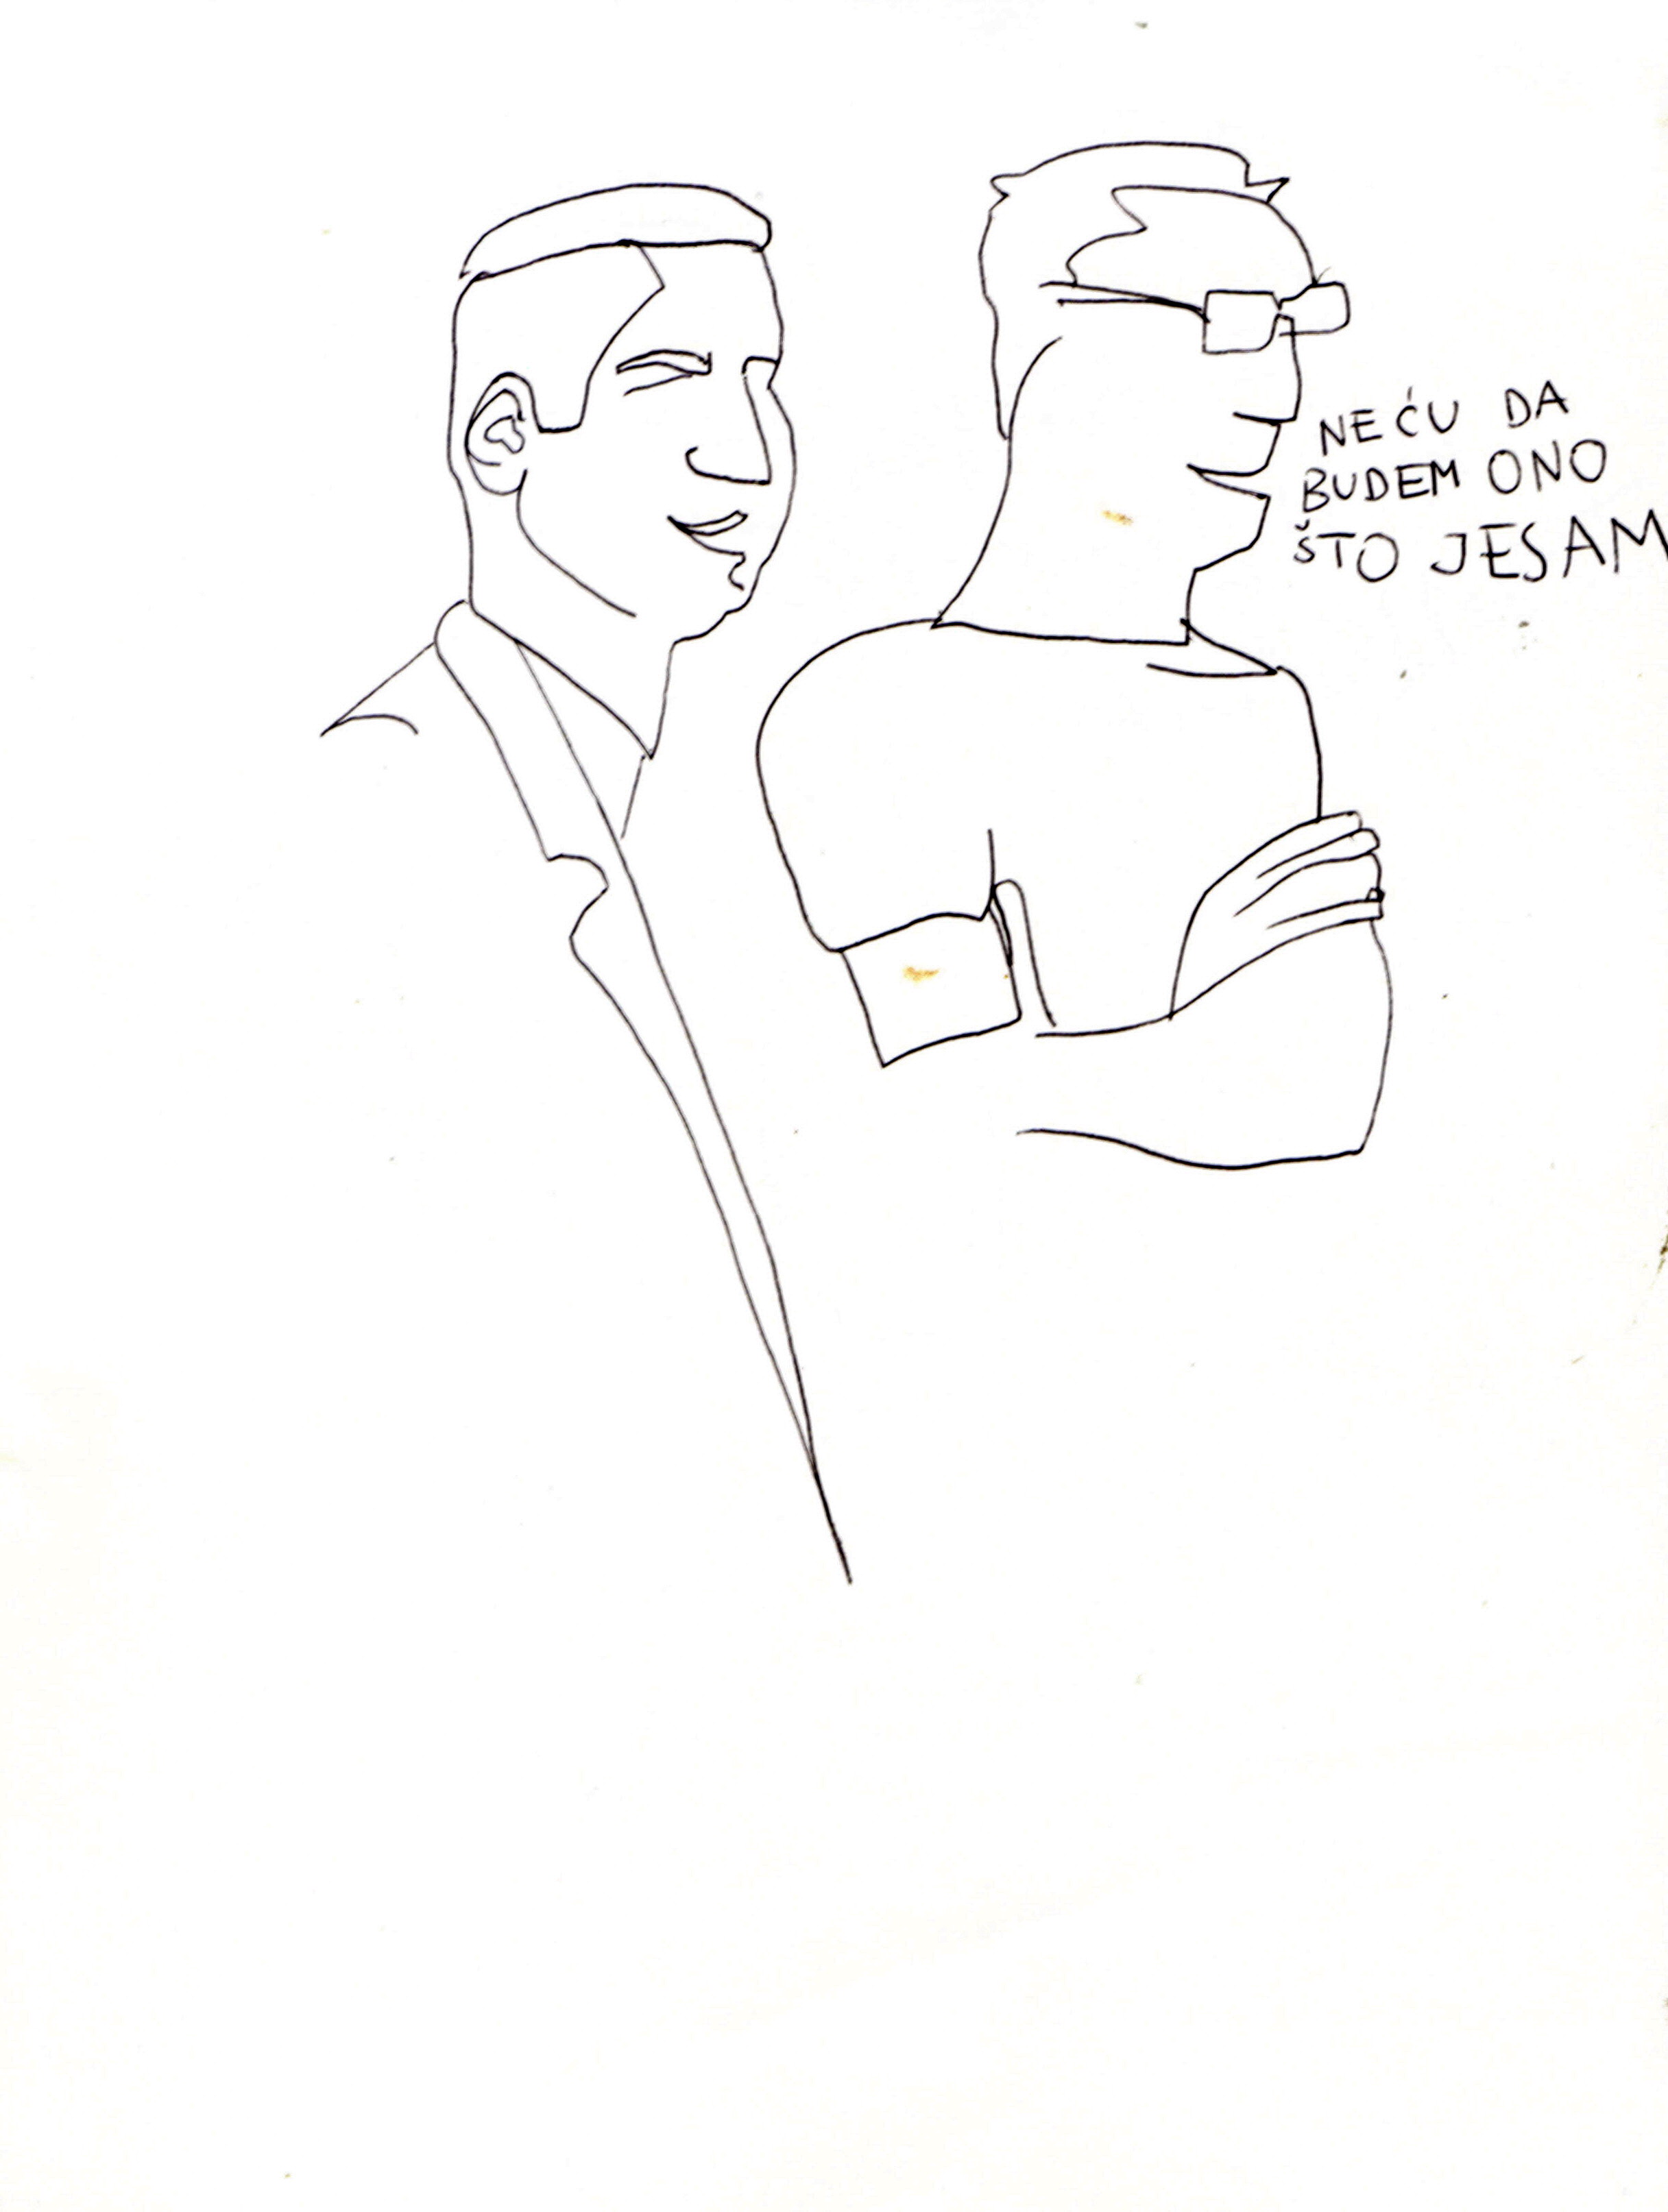 NEĆU DA
BUDEM ONO
ŠTO JESAM